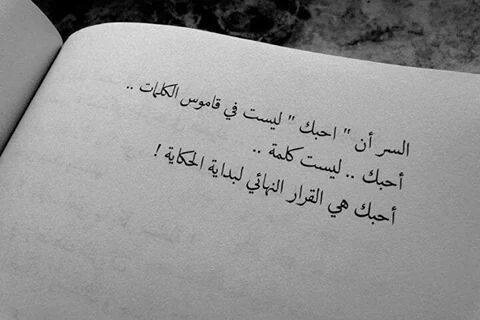 السر أن " احبك " ليست في قاموس الكلمات ..
أحبك .. ليست كلمة ..
أحبك هي القرار النهائي لبداية الحكاية !